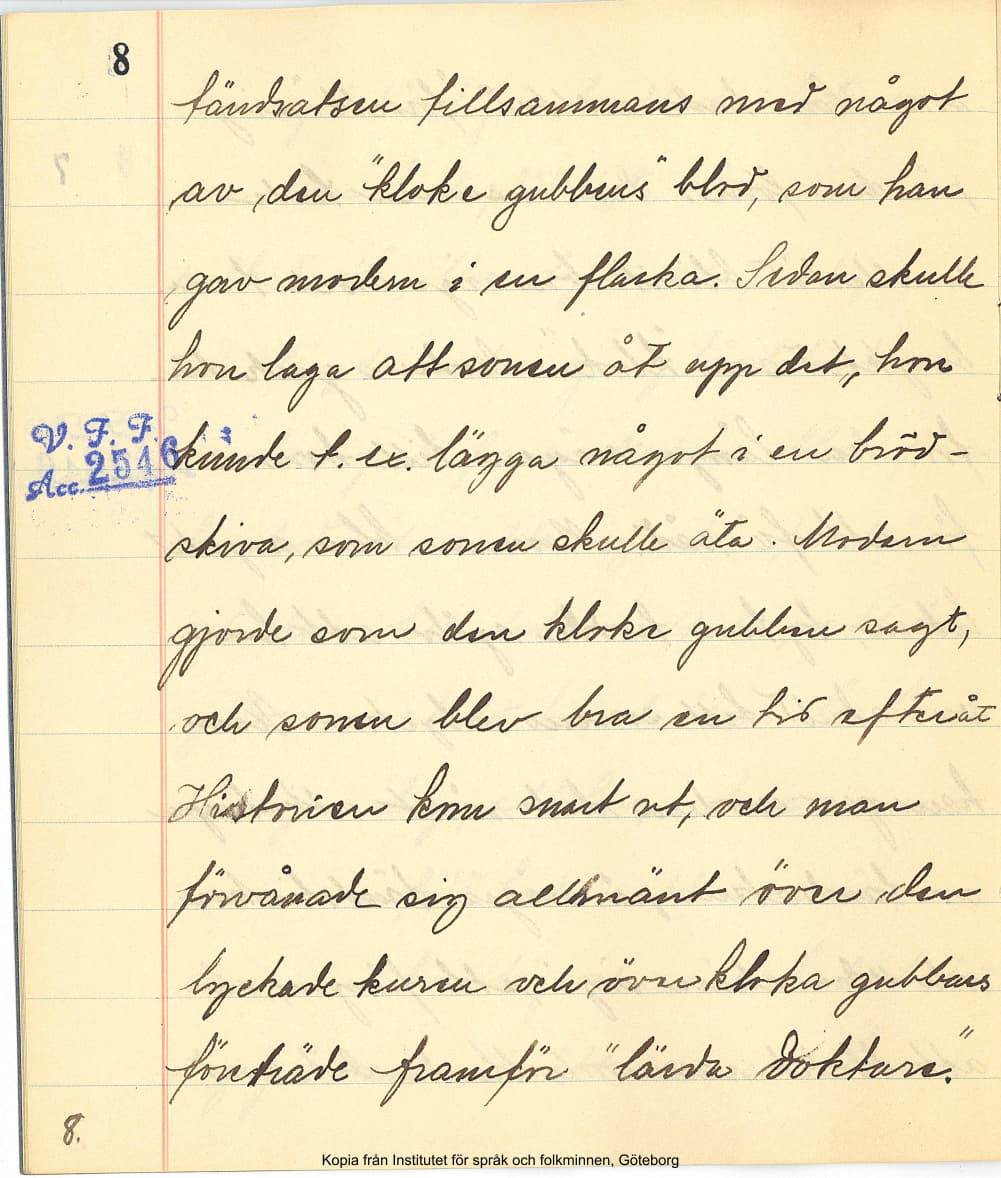 8
tändsatsen tillsammans med något
av den "kloke gubbens" blod, som han
gav modern i en flaska. Sedan skulle
hon laga att sonen åt upp det, hon
V. F. F.
Acc. 2546
kunde t. ex. lägga något i en bröd-
skiva, som sonen skulle äta. Modern
gjorde som den kloke gubben sagt,
och sonen blev bra en tid efteråt
Historien kom snart ut, och man
förvånade sig allmänt över den
lyckade kuren och över kloka gubbens
företräde framför "lärda doktare."
8.
Kopia från Institutet för språk och folkminnen, Göteborg